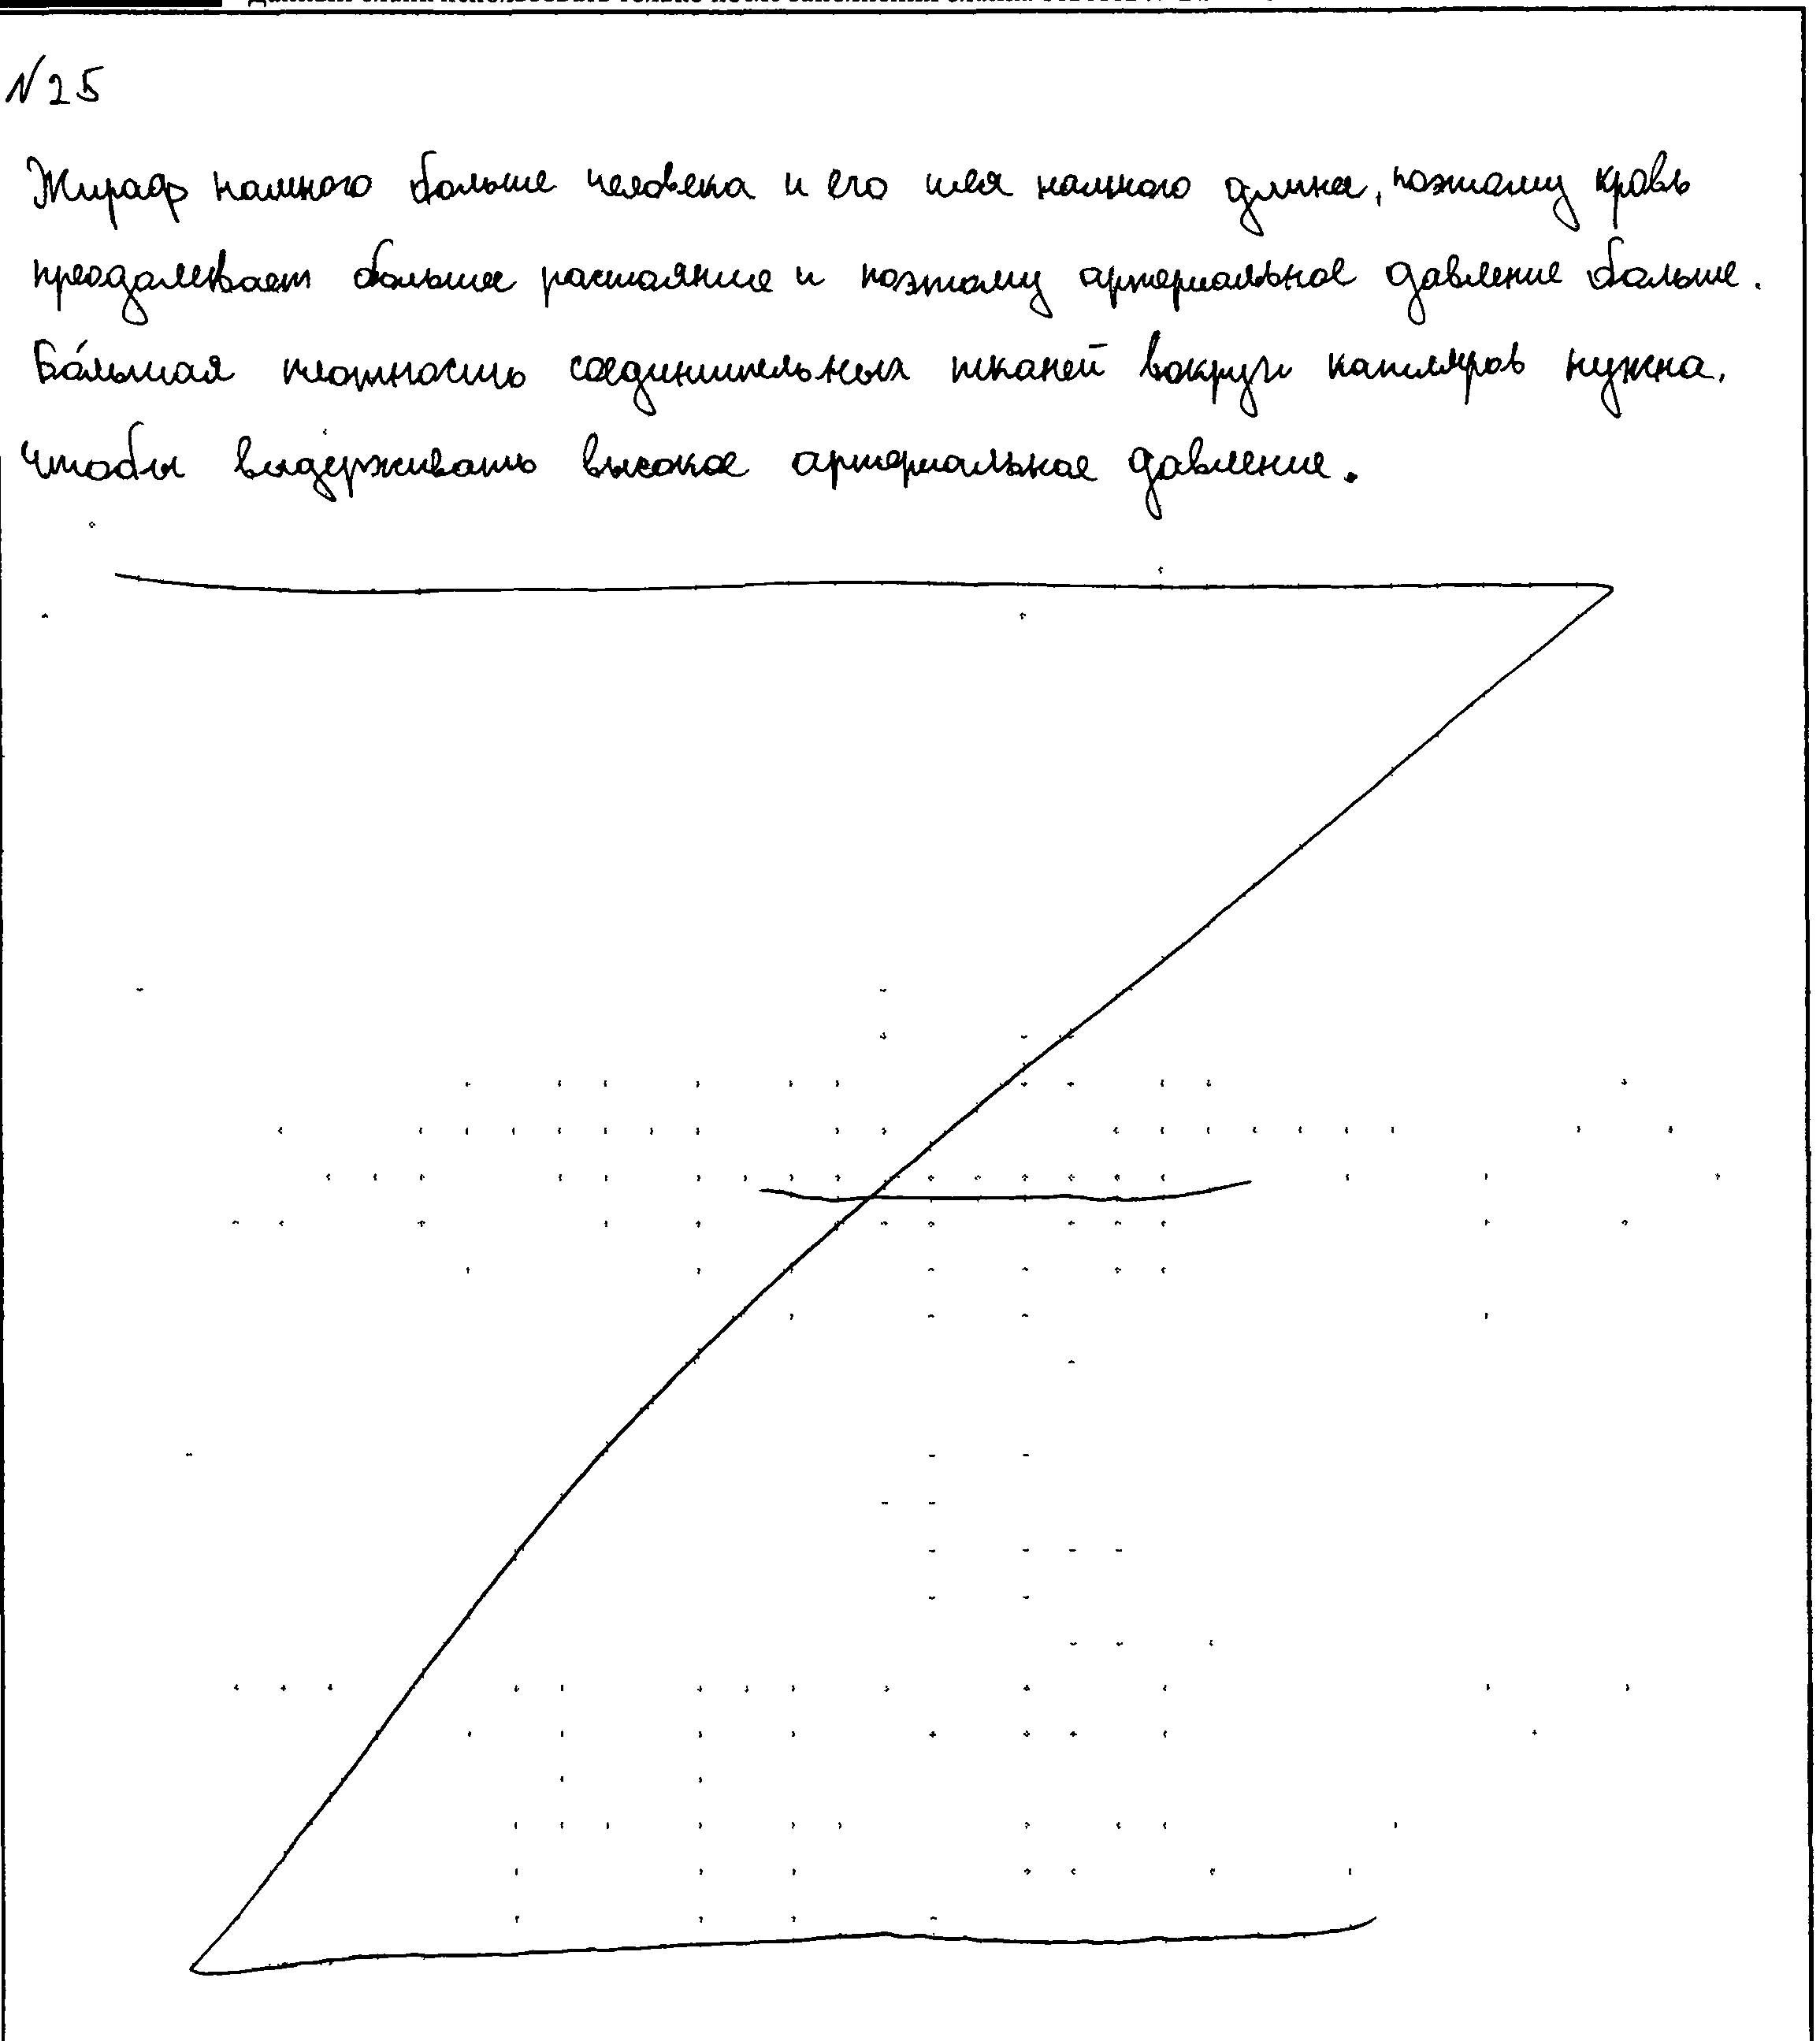 №25
Жираф намного больше человека и его шея намного длинее, поэтому кровь
преодалевает большее растояние и поэтому артериальное давление больше.
Бо́льшая плотность соединительных тканей вокруг капиляров нужна,
чтобы выдерживать высокое артериальное давление.